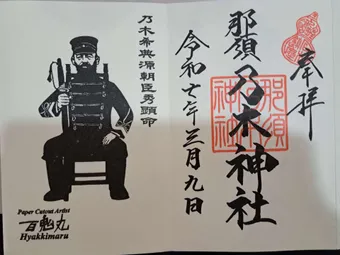 奉拝
那須乃木神社
那須
神社
令和七年三月九日
乃木希典源朝臣秀顕命
Paper Cutout Artist
百鬼丸
Hyakkimaru